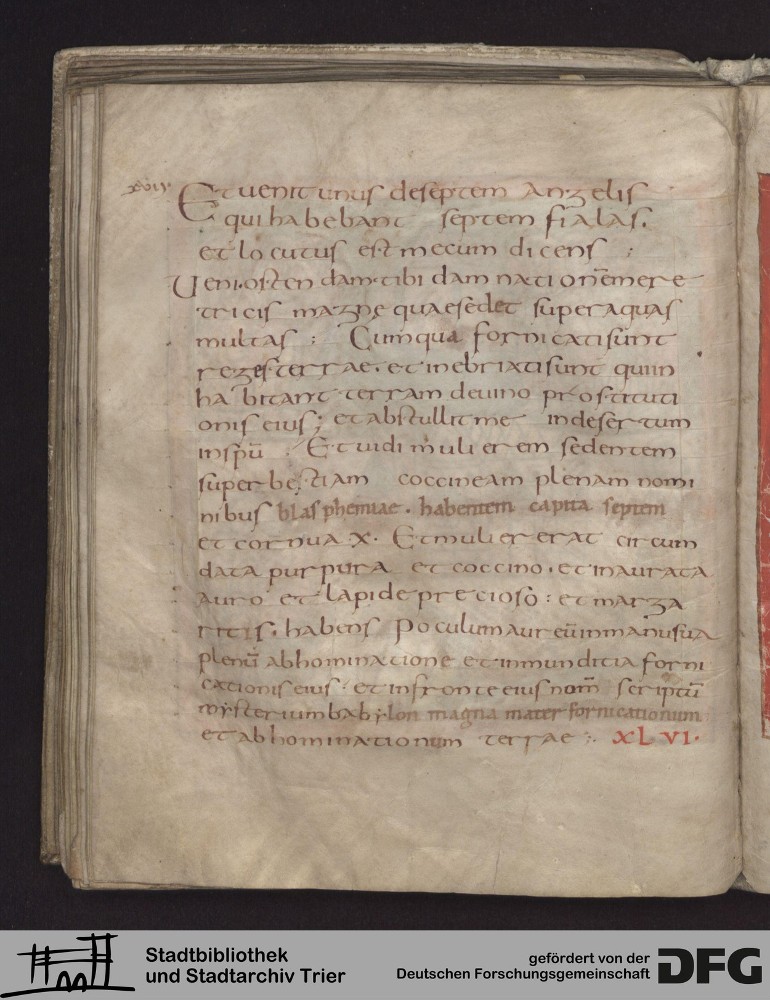 xviiy
Et uenit unus de septem angelis
qui habebant septem fialas.
et locutus est mecum dicens :
Ueni ostendam tibi damnationē mere
tricis magnę quae sedet super aquas
multas : Cum qua fornicati sunt
reges terrae. et inebriati sunt qui in
habitant terram de uino prostituti
onis eius; et abstullit me in desertum
in spū. Et uidi mulierem sedentem
super bestiam coccineam plenam nomi
nibus blasphemiae. habentem capita septem
et cornua X. Et mulier erat circum
data purpura et coccino. et inaurata
auro et lapide precioso : et marga
ritis. habens poculum aureū in manu sua
plenū abhominatione et inmunditia forni
cationis eius : et in fronte eius nom̄ scriptū
mẏsterium babẏlon magna mater fornicationum
et abhominationum terrae :. XLVI.
Stadtbibliothek
und Stadtarchiv Trier
gefördert von der
Deutschen Forschungsgemeinschaft
DFG